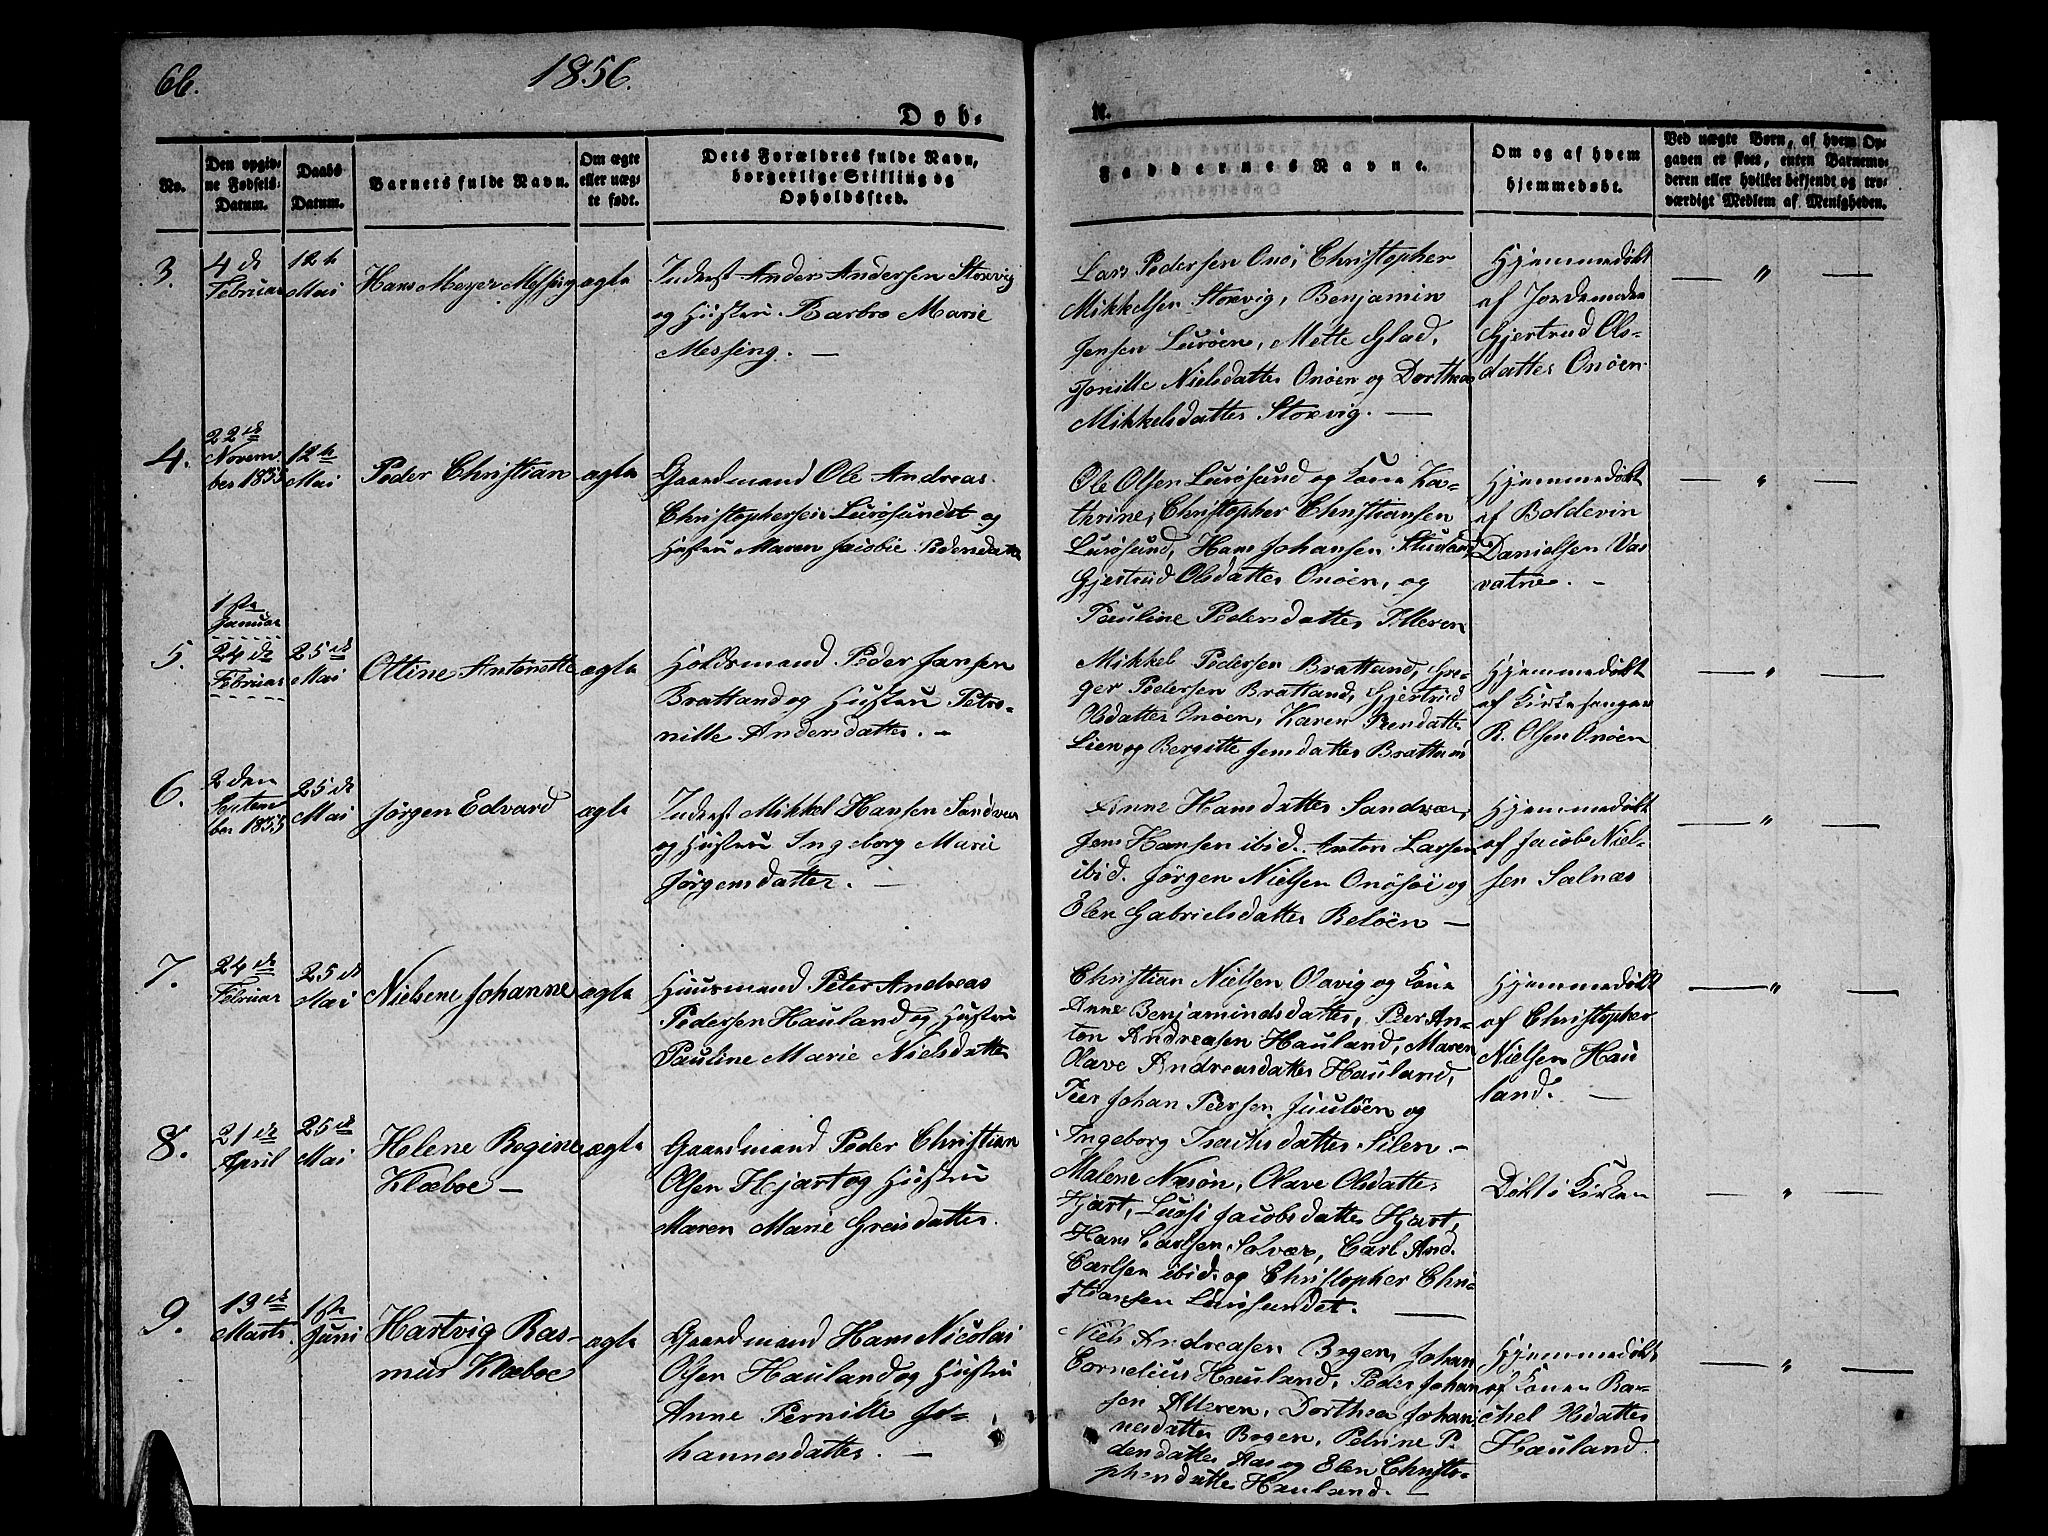 66.
1856.
Døb-
te.
No.
Den opgiv-
ne Fødsels-
Datum.
Daabs
Datum.
Barnets fulde Navn.
Om ægte
eller uæg-
te født.
Dets Forældres fulde Navn,
borgerlige Stilling og
Opholdssted.
Faddernes Navne.
Om og af hvem
hjemmedøbt.
Ved uægte Børn, af hvem Op-
gaven er skeet, enten Barnemo-
deren eller hvilket bekjendt og tro-
værdigt Medlem af Menigheden.
3.
4de
Februar
12te
Mai
Hans Meyer Messing
ægte
Inderst Anders Andersen Storvig
og Hustru Barbro Marie
Messing. —
Lars Pedersen Onöi, Christopher
Mikkelsen Storvig, Benjamin
Jensen Luröen, Mette Glad,
Pernille Nielsdatter Onöen og Dorthea
Mikkelsdatter Storvig. —
Hjemmedøbt
af Jordemoder
Gjertrud Ols-
datter Onöen
— " —
4.
22de
Novem-
ber 1855
12te
Mai
Peder Christian
ægte
Gaardmand Ole Andreas
Christophersen Lurösundet og
Hustru Maren Jacobie Pedersdatter
Ole Olsen Lurösund og Kone Ka-
thrine, Christopher Christiansen
Lurösund, Hans Johansen Stuvland
Gjertrud Olsdatter Onöen, og
Pauline Pedersdatter Alteren
Hjemmedøbt
af Boldevin
Danielsen Vas-
vatne. —
— " —
5.
1ste
Januar
24de
Februar
25de
Mai
Ottine Antonette
ægte
Holdsmand Peder Jansen
Bratland og Hustru Petro-
nille Andersdatter. —
Mikkel Pedersen Bratland, Gre-
ger Pedersen Bratland, Gjertrud
Olsdatter Onöen, Karen Jensdatter
Lien og Bergitte Jensdatter Bratland
Hjemmedøbt
af Kirkesanger
R. Olsen Onöen
— " —
6.
2den
Septem-
ber 1855
25de
Mai
Jörgen Edvard
ægte
Inderst Mikkel Hansen Sandvær
og Hustru Ingeborg Marie
Jörgensdatter. —
Anne Hansdatter Sandvær,
Jens Hansen ibid. Anton Larsen
ibid. Jörgen Nielsen Onösöi og
Elen Gabrielsdatter Relöen —
Hjemmedøbt
af Jacob Niel-
sen Selnæs
— " —
7.
24de
Februar
25de
Mai
Nielsene Johanne
ægte
Huusmand Peter Andreas
Pedersen Hauland og Hustru
Pauline Marie Nielsdatter
Christian Nielsen Olavig og Kone
Anne Benjaminsdatter, Peer An-
ton Andreasen Hauland, Maren
Olave Andreasdatter Hauland,
Peer Johan Peersen Juulöen og
Ingeborg Isachsdatter Silen. —
Hjemmedøbt
af Christopher
Nielsen Hau-
land. —
— " —
8.
21de
April
25de
Mai
Helene Regine
Klæboe —
ægte
Gaardmand Peder Christian
Olsen Hjart og Hustru
Maren Marie Greisdatter.
Malene Næsön, Olave Olsdatter
Hjart, Luösi Jacobsdatter Hjart,
Hans Carlsen Solvær, Carl And.
Carlsen ibid. og Christopher Chri-
stiansen Lurösundet. —
Døbt i Kirken
— " —
9.
13de
Marts
1ste
Juni
Hartvig Ras-
mus Klæboe
ægte
Gaardmand Hans Nicolai
Olsen Hauland og Hustru
Anne Pernille Jo-
hannesdatter. —
Niels Andreasen Bogen, Johan
Cornelius Hauland, Peder Johan-
sen Alteren, Dorthea Johan-
nesdatter Bogen, Petrine P.
dersdatter Aas og Elen Christo-
phersdatter Hauland. —
Hjemmedøbt
af Konen Ra-
chel Hdatter
Hauland.
— " —